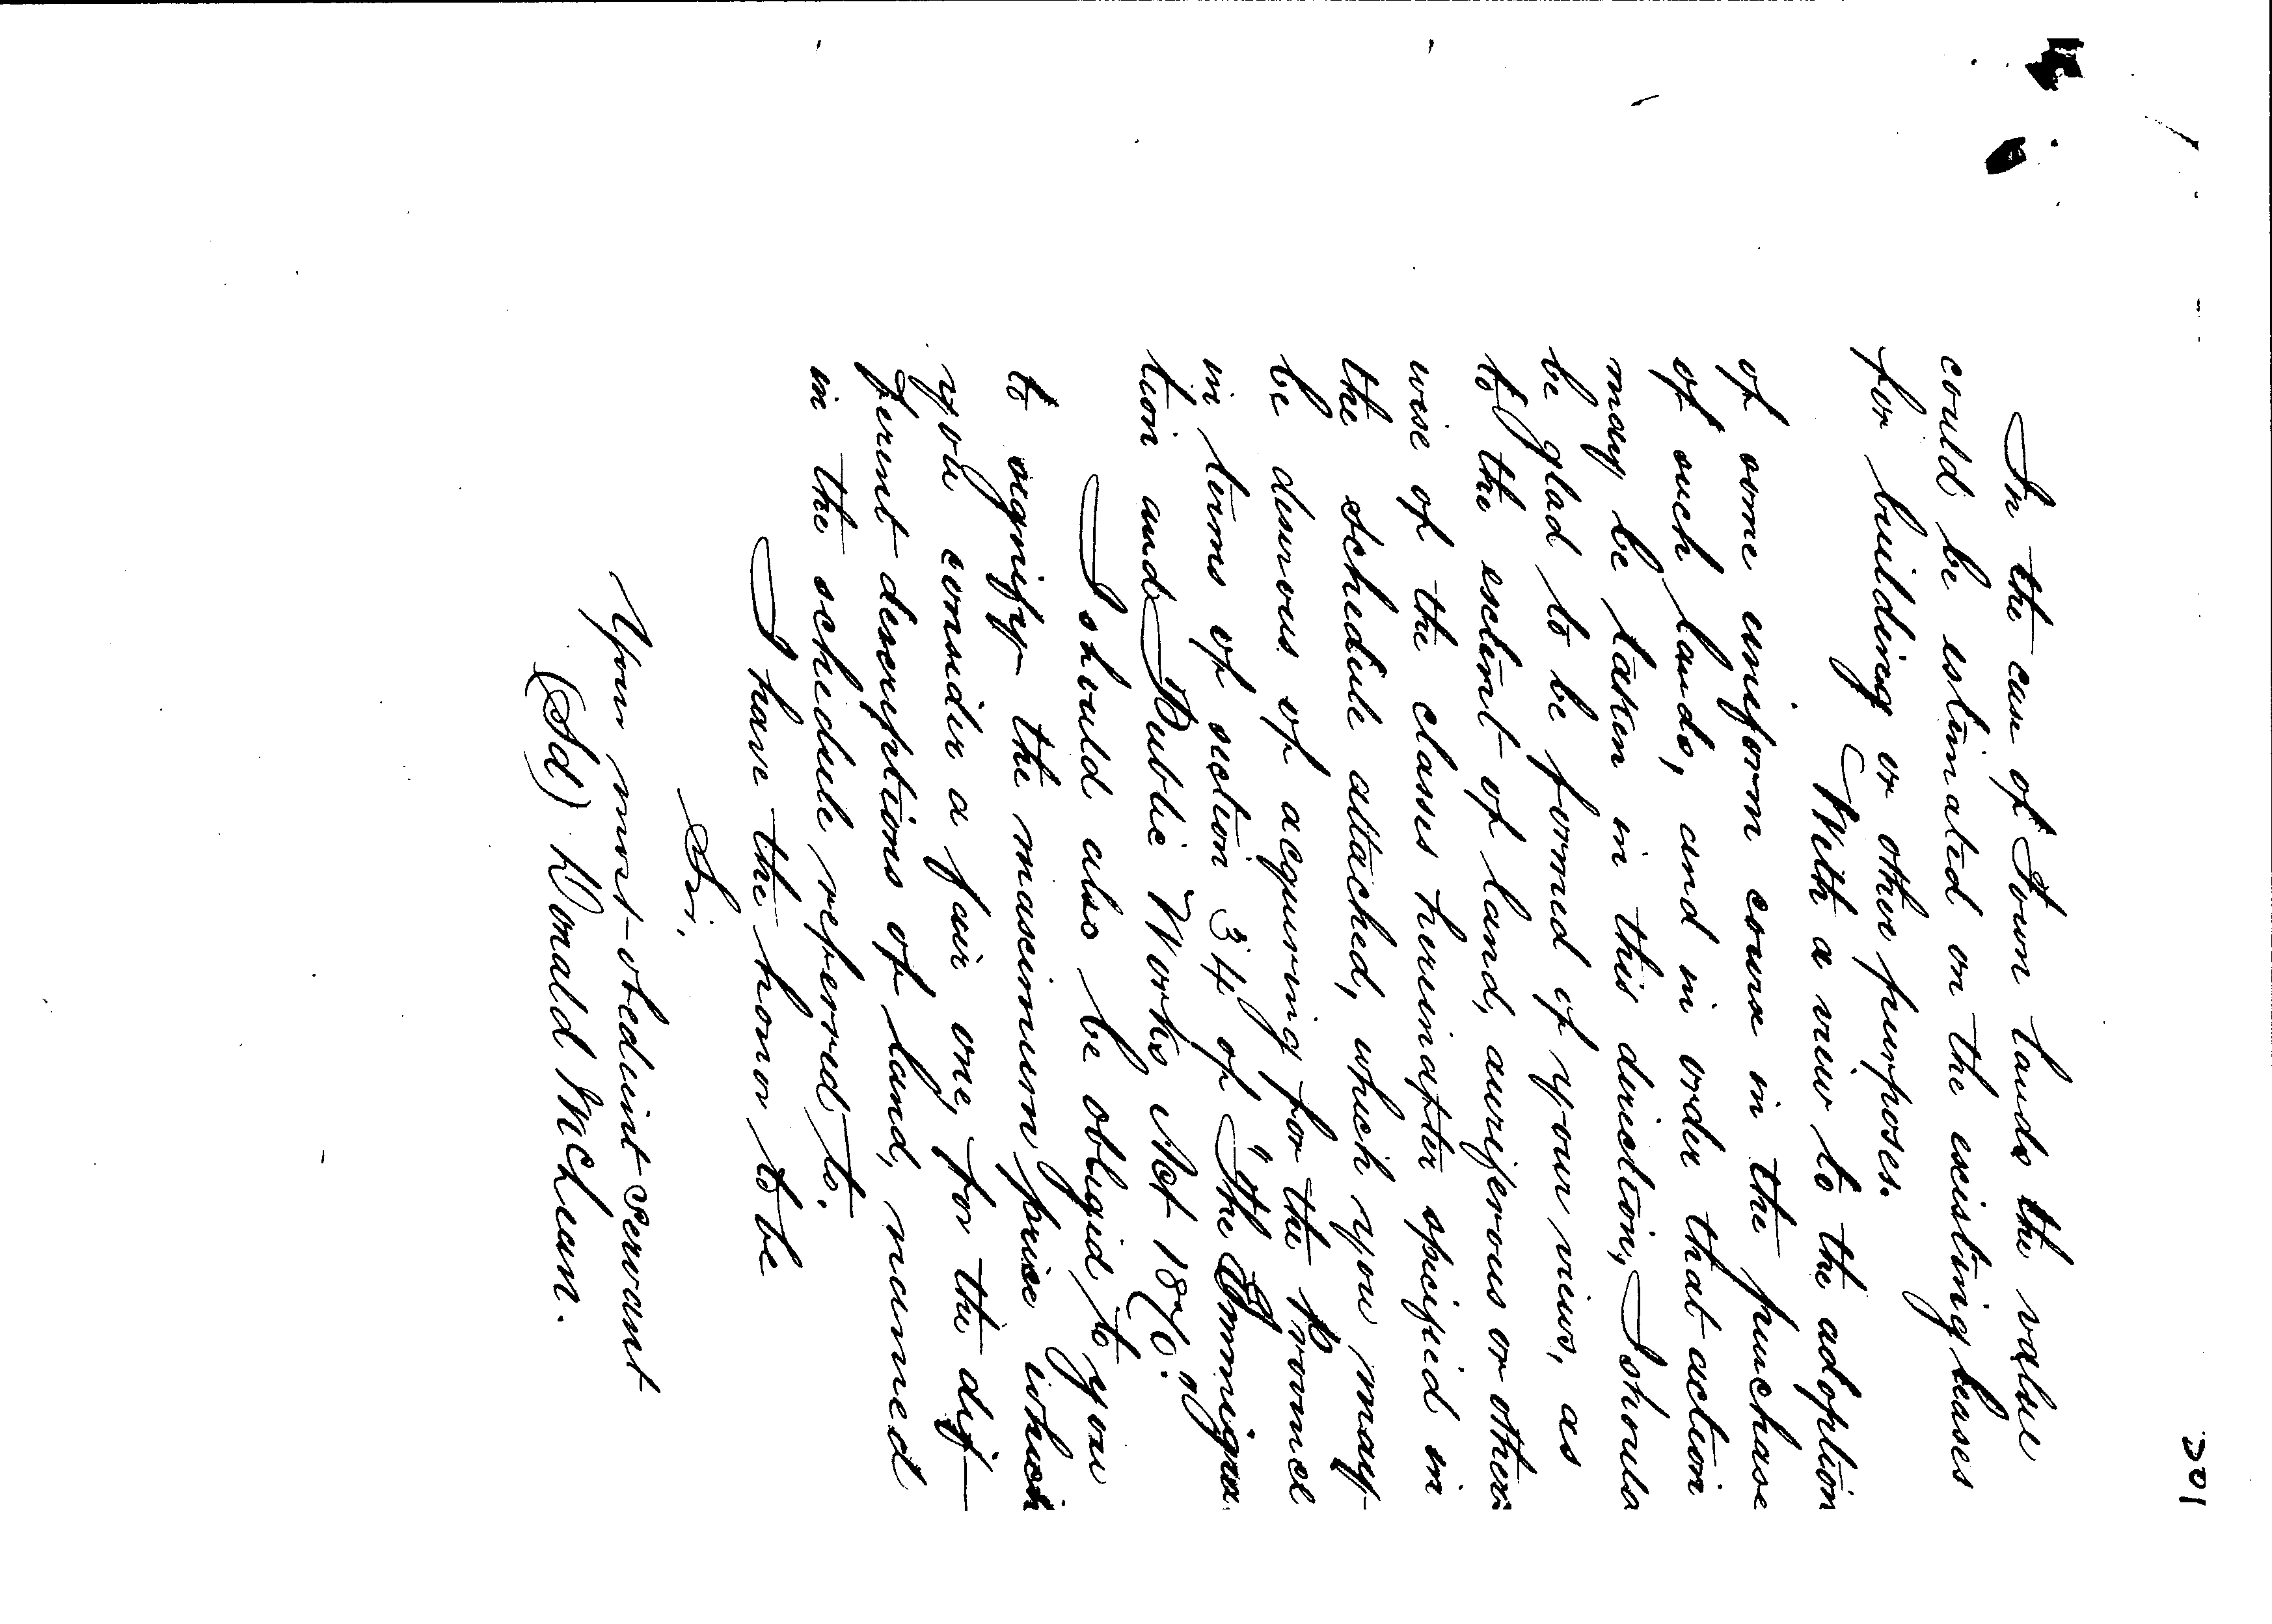 301
In the case of Town lands the value
could be estimated on the existing leases
for building or other purposes.
With a view to the adoption
of some uniform course in the purchase
of such lands, and in order that action
may be taken in this direction, I should
be glad to be formed of your views, as
to the extent of land, auriferous or other-
wise of the classes hereinafter specified in
the schedule attached, which you may
be desirous of acquiring for the Province
in terms of section 34 of "The Immigra
tion and Public Works Act 1870."
I should also be obliged to you
to signify the maximum price which
you consider a fair one, for the dif-
ferent descriptions of land, named
in the schedule referred to.
I have the honor to be
Sir,
Your most obedient servant
(Sd) Donald McLean.